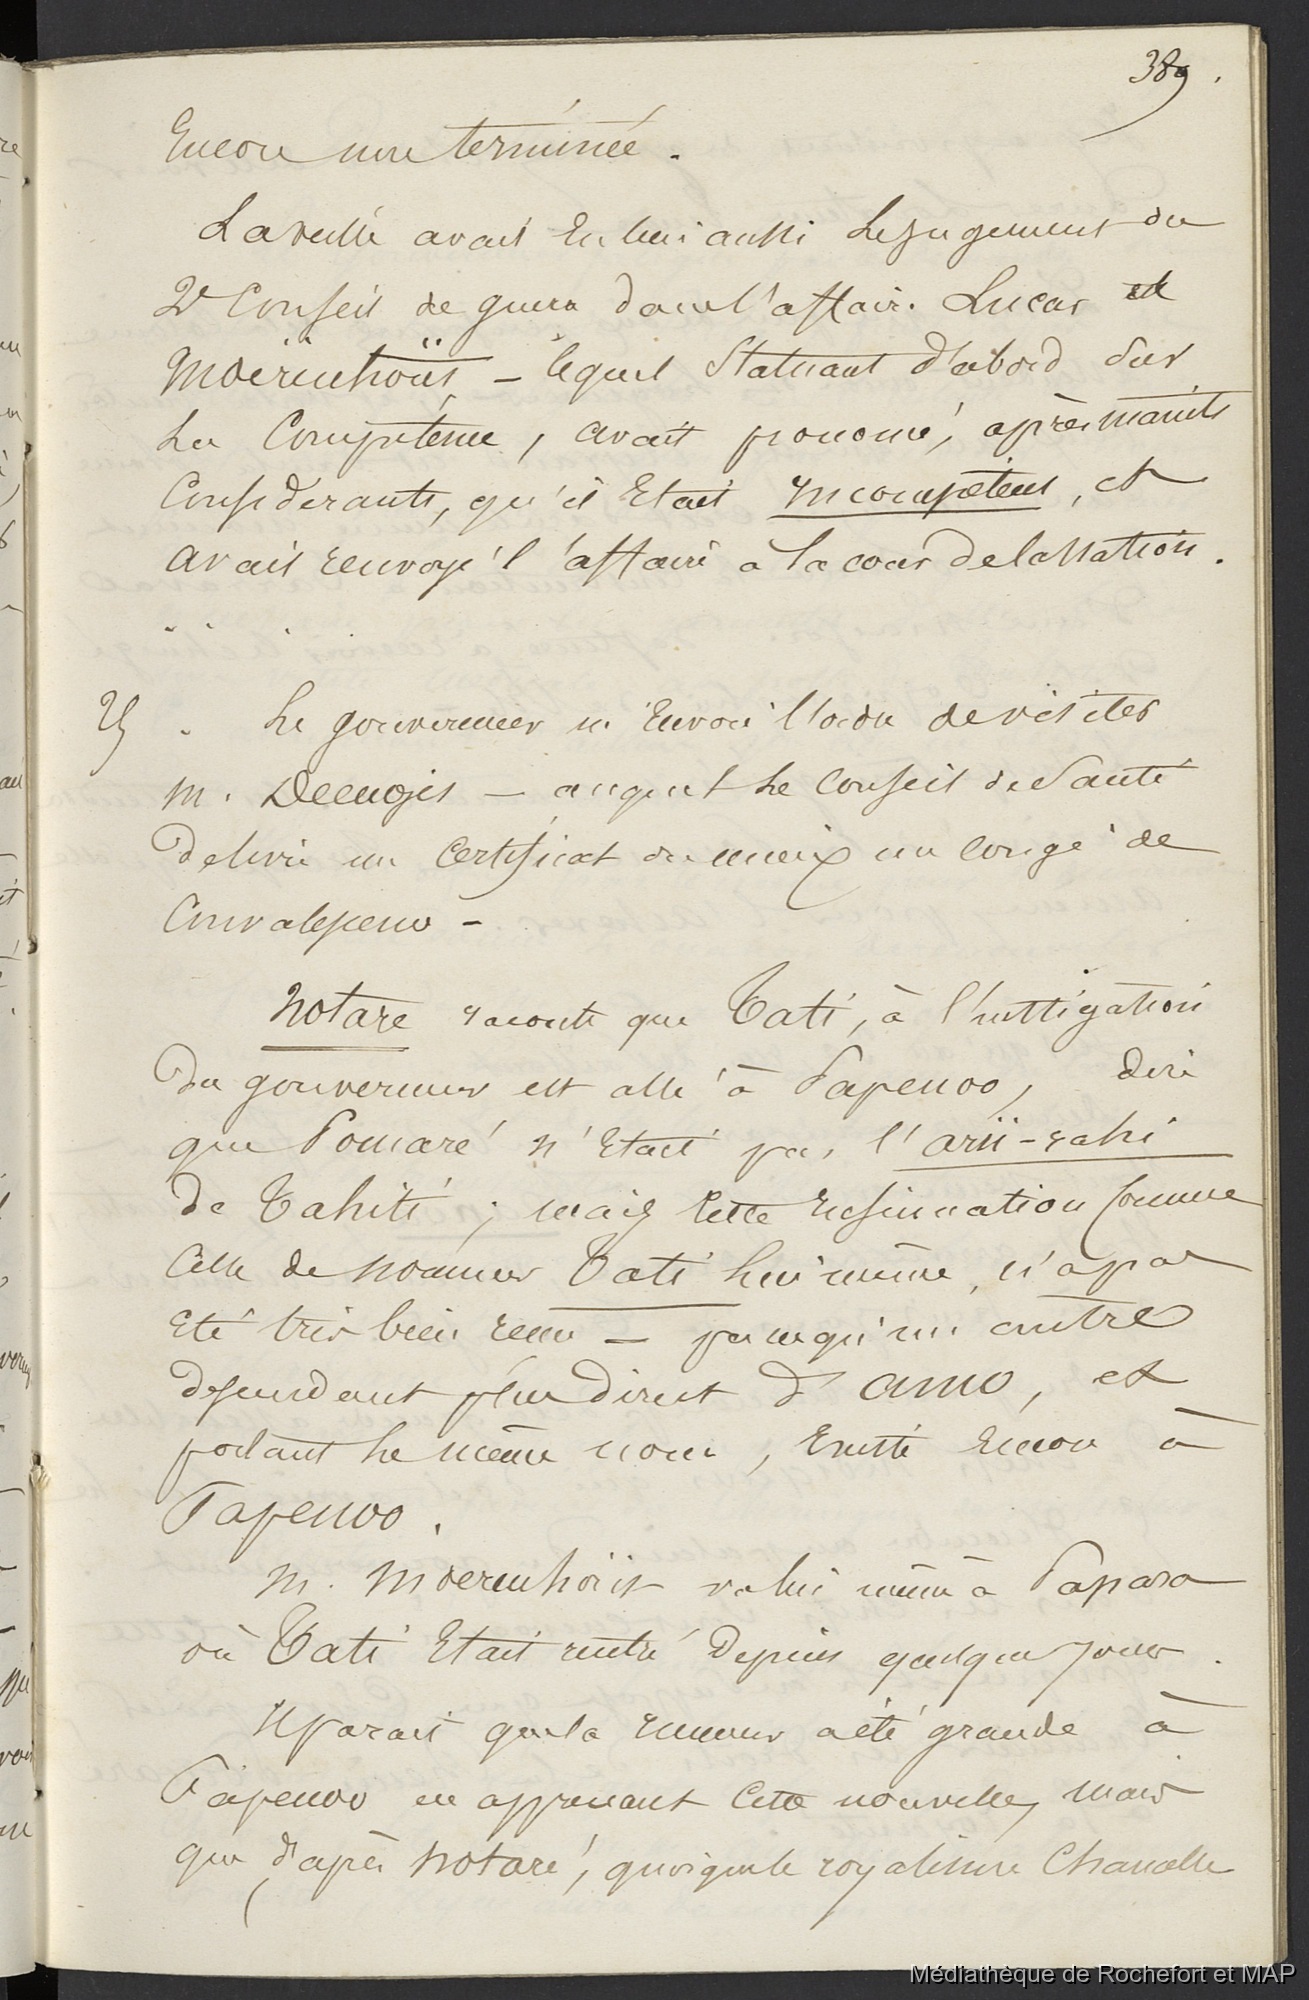 389.
Encore non terminée.
La veille avait eu lieu aussi le jugement du
2e Conseil de guerre dans l'affaire Lucas et
Moërenhoüt – lequel statuant d'abord sur
la Compétence, avait prononcé, après maints
Considerants, qu'il Etait incompétent, et
avait renvoyé l'affaire à la cour de Cassation.
. . .
25. Le gouverneur m'Envoie l'ordre de visiter
M. – auquel le Conseil de Santé
delivre un Certificat un congé de
Convalescence –
Notare raconte que Tati, à l'instigation
du gouverneur est allé à Papenoo, dire
que Pomaré n'Etait pas l'arii-rahi
de Tahiti ; mais cette insinuation comme
Celle de nommer Tati lui même, n'a pas
Eté très bien recue – parcequ'un autre
descendant plus direct d'amo, et
portant le même nom, Existe Encore à
Papenoo.
M. Moerenhoüt va lui même à Papara
où Tati Etait rentré depuis quelques jours.
Il parait que la rumeur a été grande à
Papenoo en apprenant Cette nouvelle, mais
que d'après Notaré, quoique le royalisme Chancelle
Médiathèque de Rochefort et MAP